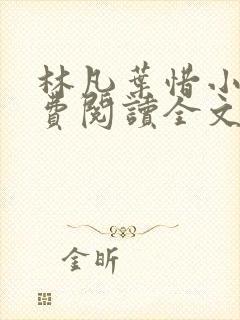 林凡葉惜小
費閱讀全文
金昕